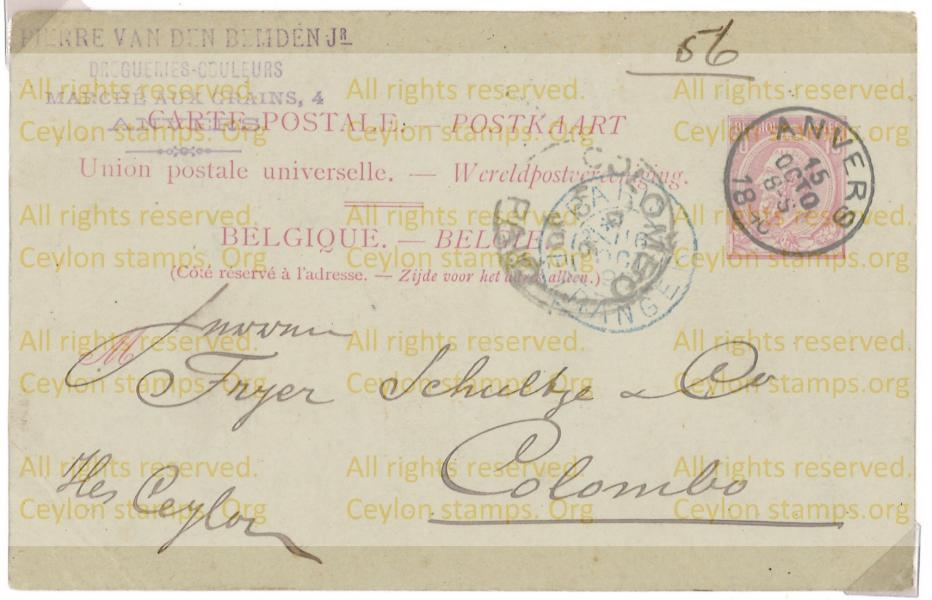 PIERRE VAN DEN BEMDEN JR
DROGUERIES-COULEURS
MARCHÉ AUX GRAINS, 4
ANVERS
56
CARTE POSTALE. — POSTKAART
Union postale universelle. — Wereldpostvereeniging.
BELGIQUE. — BELGIE
(Côté réservé à l'adresse. — Zijde voor het adres alleen.)
ANVERS
15
OCTO
18
COLOMBO
PAID
M
Fryer Schultze & Co
Colombo
Ceylon
All rights reserved. All rights reserved. All rights reserved.
Ceylon stamps. Org Ceylon stamps. Org Ceylon stamps. Org
All rights reserved. All rights reserved. All rights reserved.
Ceylon stamps. Org Ceylon stamps. Org Ceylon stamps. Org
All rights reserved. All rights reserved. All rights reserved.
Ceylon stamps. Org Ceylon stamps. Org Ceylon stamps. Org
All rights reserved. All rights reserved. All rights reserved.
Ceylon stamps. Org Ceylon stamps. Org Ceylon stamps. Org